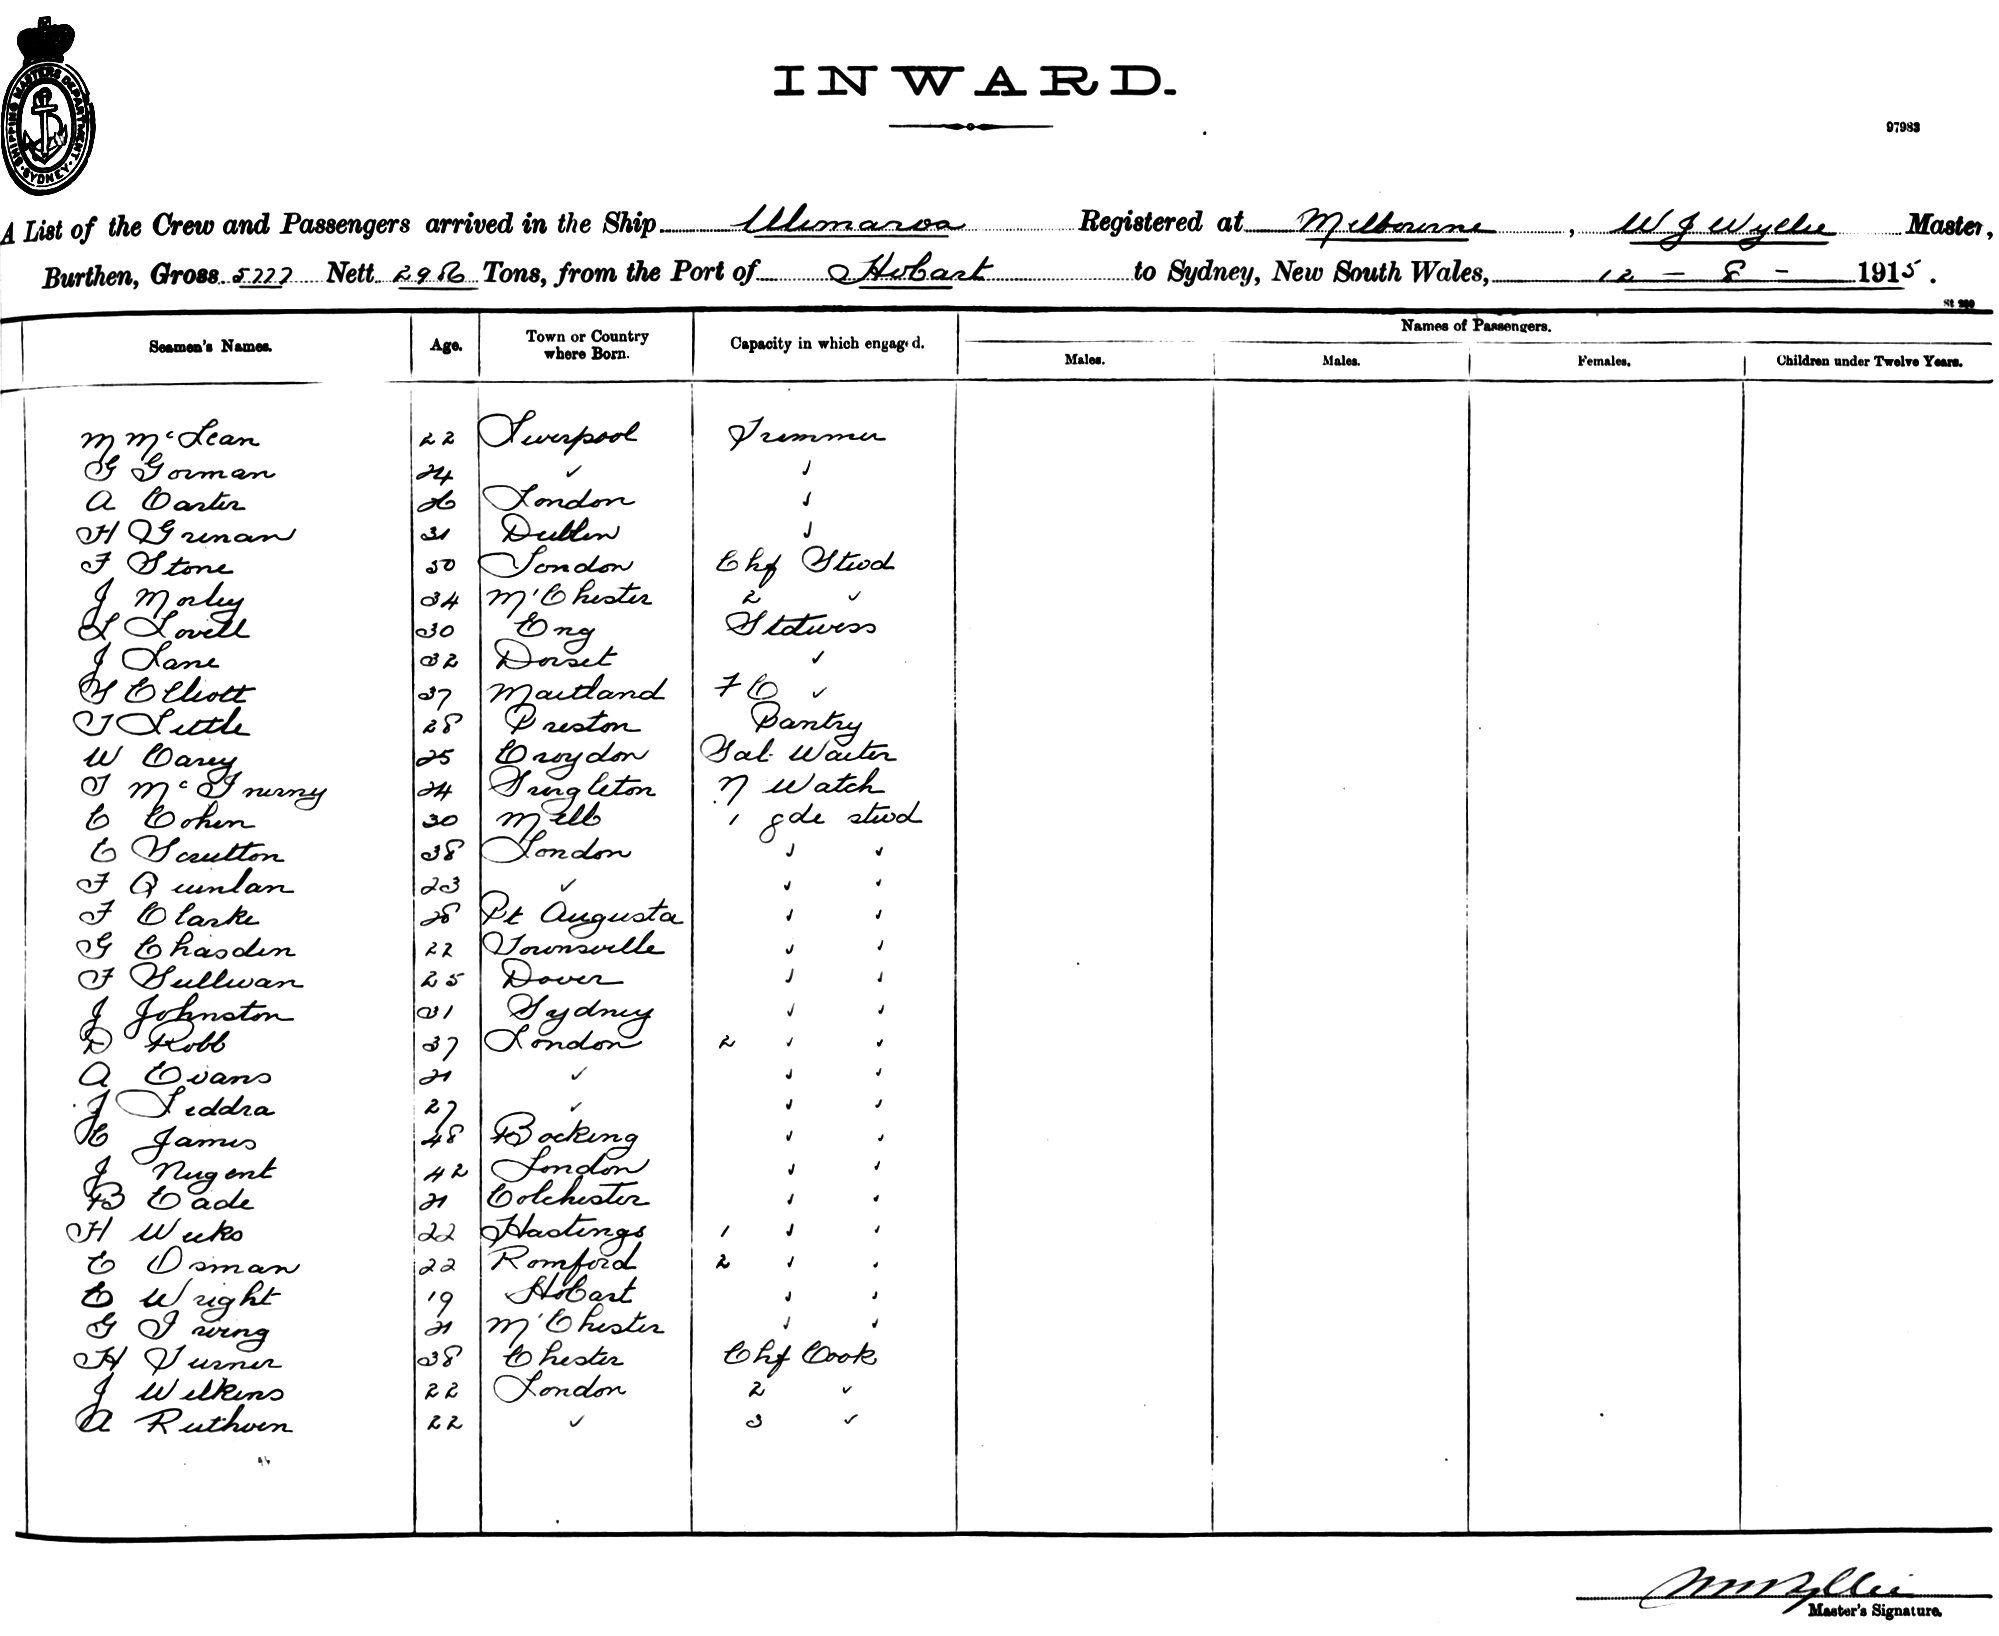 SHIPPING MASTERS DEPARTMENT. SYDNEY.
INWARD.
97983
A List of the Crew and Passengers arrived in the Ship Ulimaroa Registered at Melbourne, W J Wyllie Master,
Burthen, Gross 5777 Nett 2986 Tons, from the Port of Hobart to Sydney, New South Wales, 12 - 8 - 1915.
Names of Passengers.
Seamen's Names. Age. Town or Country where Born. Capacity in which engaged. Males. Males. Females. Children under Twelve Years.
M McLean 22 Liverpool Trimmer
G Gorman 24 ✓ ✓
A Carter 26 London ✓
H Grenan 31 Dublin ✓
F Stone 50 London Chf Stwd
J Morley 34 M'Chester 2 ✓
L Lovell 30 Eng Stdwess
J Lane 32 Dorset ✓
S Elliott 37 Maitland F C ✓
T Little 28 Preston Pantry
W Carey 25 Croydon Sal. Waiter
T McInerny 24 Singleton N Watch
C Cohen 30 Melb 1 gde stwd
C Scrutton 38 London ✓ ✓
F Quinlan 23 ✓ ✓ ✓
F Clarke 28 Pt Augusta ✓ ✓
G Chasden 22 Townsville ✓ ✓
F Sullivan 25 Dover ✓ ✓
J Johnston 31 Sydney ✓ ✓
D Robb 37 London 2 ✓ ✓
A Evans 21 ✓ ✓ ✓
J Leddra 27 ✓ ✓ ✓
C James 48 Bocking ✓ ✓
J Nugent 42 London ✓ ✓
B Eade 21 Colchester ✓ ✓
H Weeks 22 Hastings 1 ✓ ✓
E Osman 22 Romford 2 ✓ ✓
E Wright 19 Hobart ✓ ✓
G Irving 21 M'Chester ✓ ✓
H Turner 38 Chester Chf Cook
J Wilkins 22 London 2 ✓
A Ruthven 22 ✓ 3 ✓
Master's Signature.